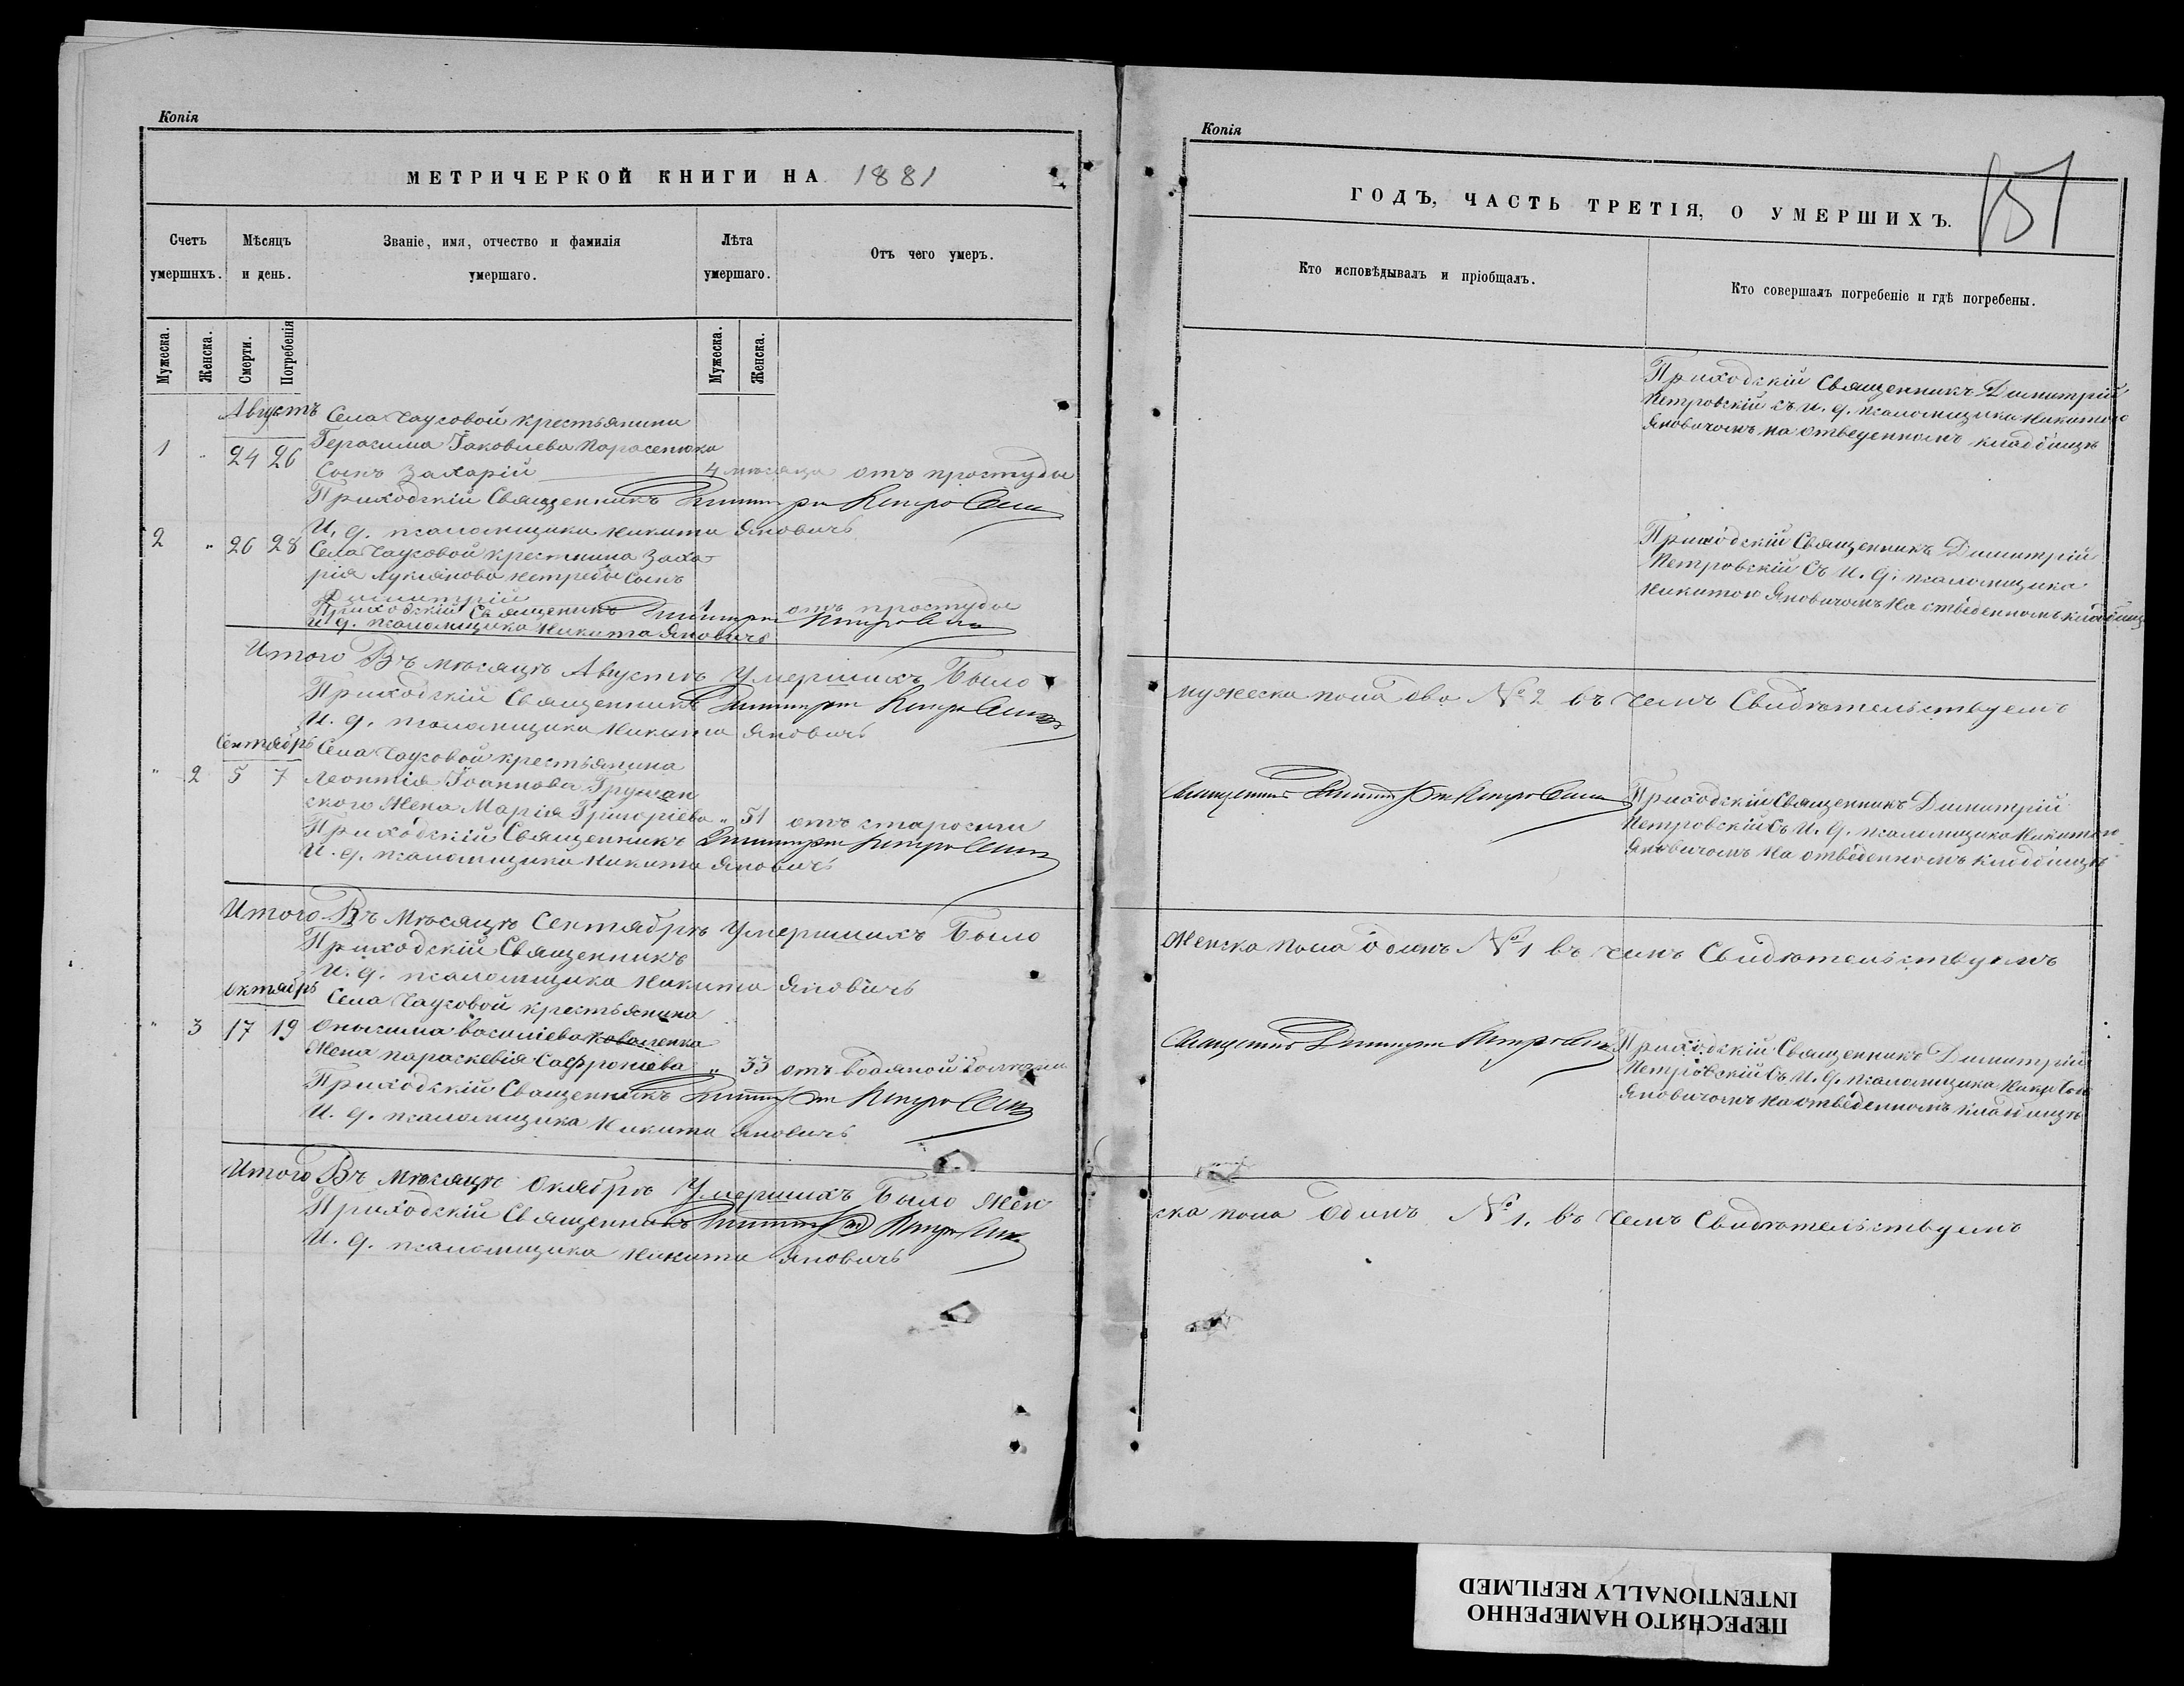 Копія
МЕТРИЧЕРКОЙ КНИГИ НА 1881
Счетъ умершихъ.
Мѣсяцъ и день.
Званіе, имя, отчество и фамилія умершаго.
Лѣта умершаго.
Отъ чего умеръ.
Мужеска.
Женска.
Смерти.
Погребенія
Мужеска.
Женска.
Августъ Села Чаусовой крестьянина
Герасима Іаковлева Парасенюка
1 " 24 26 сынъ Захарій 4 мѣсяца отъ простуды
Приходскій Священникъ Димитрій Петровскій
И. д. псаломщика Никита Яновичъ
2 " 26 28 Села Чаусовой крестнина Заха-
рія Лукіянова Нетребы сынъ
Димитрій 1 отъ простуды
Приходскій Священникъ Димитрій Петровскій
И д. псаломщика Никита Яновичъ
Итого Въ мѣсяцѣ Августѣ Умершихъ Было
Приходскій Священникъ Димитрій Петровскій
И. д. псаломщика Никита Яновичъ
Сентябрь Села Чаусовой крестьянина
" 2 5 7 Леонтія Іоаннова
ского Жена Марія Григоріева " 51 отъ старости
Приходскій Священникъ Димитрій Петровскій
И. д. псаломщика Никита Яновичъ
Итого Въ Мѣсяцѣ Сентябрѣ Умершихъ Было
Приходскій Священникъ
И. д. псаломщика Никита Яновичъ
октябрь Села Чаусовой крестьянина
" 3 17 19 Онисима Василіева Коваленка
Жена параскевія Софроніева " 33 отъ водяной болезни
Приходскій Священникъ Димитрій Петровскій
И. д. псаломщика Никита Яновичъ
Итого Въ Мѣсяцѣ Окябрѣ Умершихъ Было Жен
Приходскій Священникъ Димитрій Петровскій
И. д. псаломщика Никита Яновичъ
Копія
ГОДЪ, ЧАСТЬ ТРЕТІЯ, О УМЕРШИХЪ.
151
Кто исповѣдывалъ и пріобщалъ.
Кто совершалъ погребеніе и гдѣ погребены.
Приходскій Священникъ Димитрій
Петровскій съ И. д. псаломщика Никитою
Яновичомъ на отведенномъ кладбищѣ
Приходскій Священникъ Димитрій
Петровскій Съ И. д. псаломщика
Никитою Яновичомъ На отведенномъ кладбищѣ
мужеска пола два № 2 въ чемъ Свидѣтельствуемъ
Священникъ Димитрій Петровскій
Приходскій Священникъ Димитрій
Петровскій Съ И. д. псаломщика Никитою
Яновичомъ На отведенномъ кладбищѣ
Женска пола одинъ № 1 въ чемъ Свидѣтельствуемъ
Священникъ Димитрій Петровскій
Приходскій Священникъ Димитрій
Петровскій Съ И. д. псаломщика
Яновичомъ На отведенномъ кладбищѣ
ска пола Одинъ № 1. въ чемъ Свидѣтельствуемъ
ПЕРЕСНЯТО НАМЕРЕННО
INTENTIONALLY REFILMED